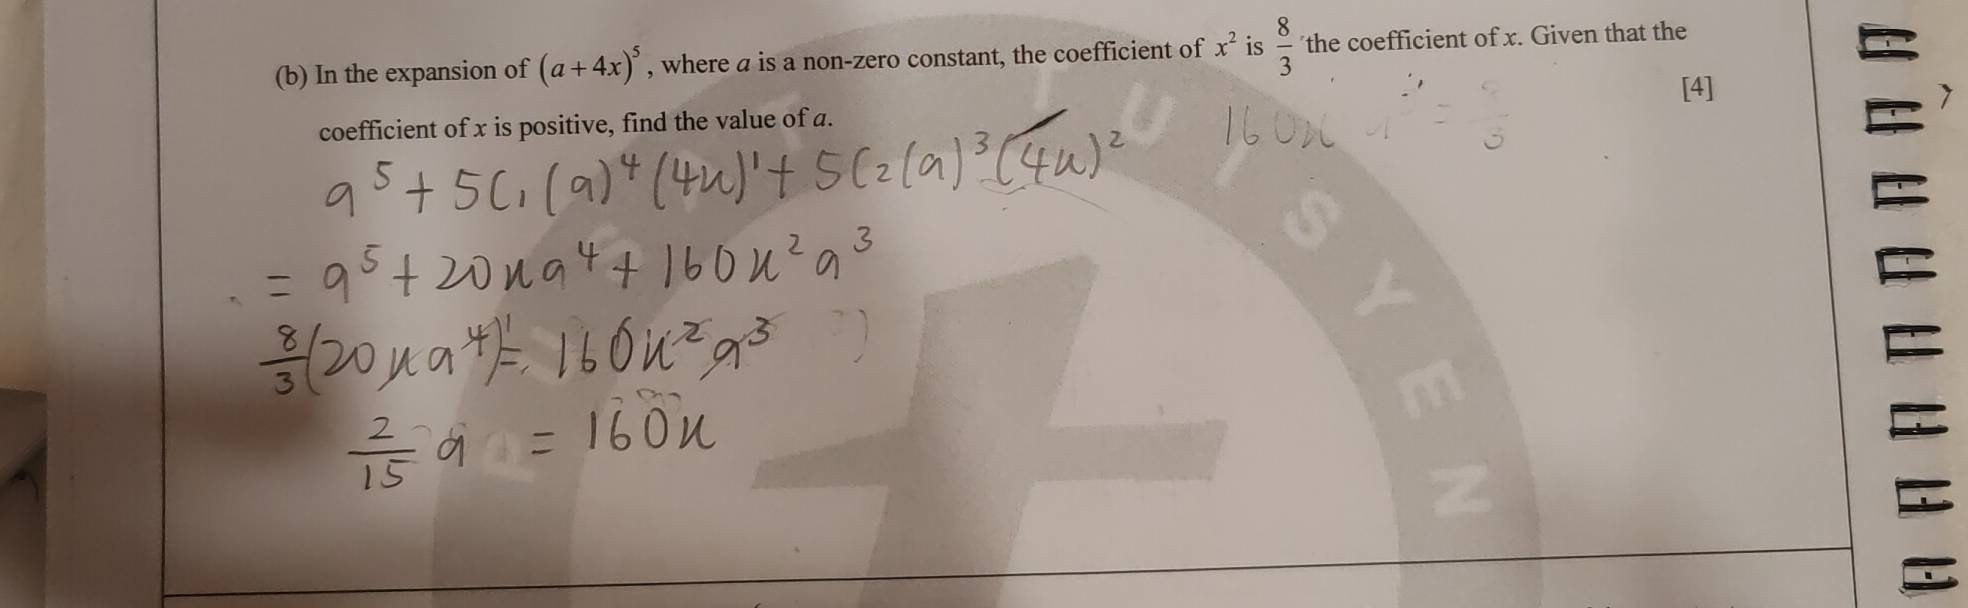 (b) In the expansion of (a + 4x)^5, where a is a non-zero constant, the coefficient of x² is 8/3 the coefficient of x. Given that the
coefficient of x is positive, find the value of a.
[4]
a^5 + 5C₁(a)^4(4x)^1 + 5C₂(a)^3(4x)^2
= a^5 + 20xa^4 + 160x²a³
8/3(20xa^4) = 160x²a³
2/15 a = 160x
160x